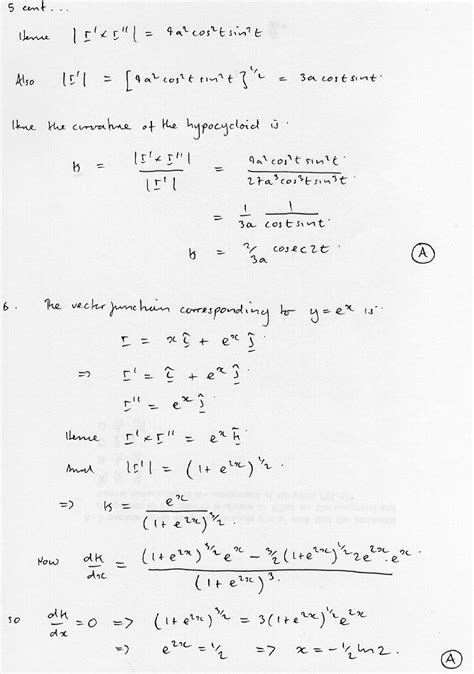 5 cont...
Hence |r' × r''| = 9a² cos²t sin²t
Also |r'| = [9a² cos²t sin²t]^1/2 = 3a cost sint.
Hence the curvature of the hypocycloid is.
κ = |r' × r''| / |r'| = 9a² cos²t sin²t / 27a³ cos³t sin³t.
= 1/3a 1/cost sint.
κ = 2/3a cosec2t. (A)
6. The vector function corresponding to y = e^x is.
r = x î + e^x ĵ
⇒ r' = î + e^x ĵ.
r'' = e^x ĵ.
Hence r' × r'' = e^x k̂
And |r'| = (1 + e^2x)^1/2.
⇒ κ = e^x / (1 + e^2x)^3/2
Now dκ/dx = (1+e^2x)^3/2 e^x - 3/2 (1+e^2x)^1/2 2e^2x . e^x / (1+e^2x)^3.
so dκ/dx = 0 ⇒ (1+e^2x)^3/2 = 3(1+e^2x)^1/2 e^2x
⇒ e^2x = 1/2 ⇒ x = -1/2 ln 2. (A)